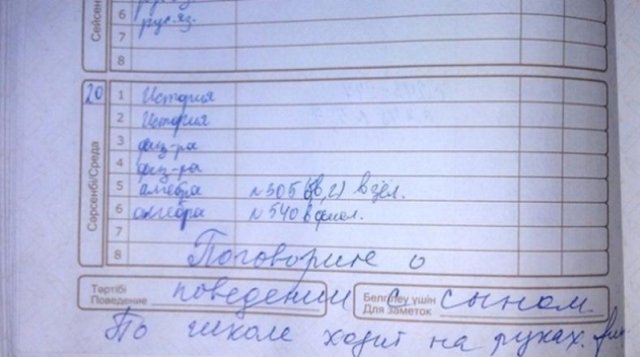 Сейсен
6 рус.яз.
7
8
20
Сәрсенбі/Среда
1 История
2 История
3 физ-ра
4 физ-ра
5 алгебра №305(в,г) в дел.
6 алгебра №540
7
8
Поговорите о
Тәртібі
Поведение
поведении с сыном.
Белгілеу үшін
Для заметок
По школе ходит на руках.